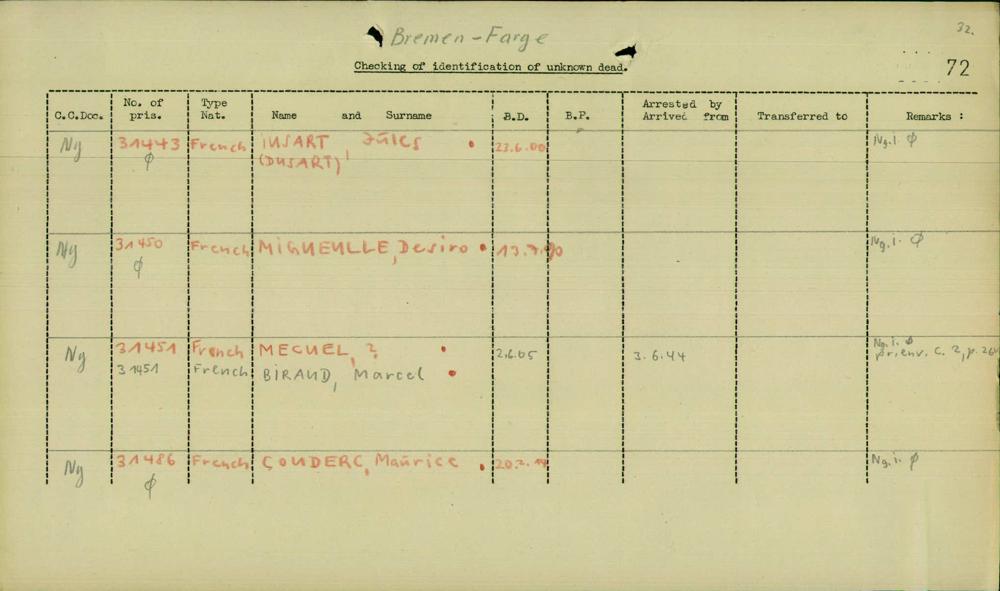 32.
Bremen-Farge
Checking of identification of unknown dead.
72
C.C.Doc. No. of pris. Type Nat. Name and Surname B.D. B.P. Arrested by Arrived from Transferred to Remarks :
Ng 31443 French INSART, Jules 23.6.00 Ng.i. Ø
Ø (DUSART)
Ng 31450 French MIGUEULLE, Desiro 13.7.90 Ng.i. Ø
Ø
Ng 31451 French MECUEL, ? Ng.i. Ø
31451 French BIRAUD, Marcel 2.6.05 3.6.44 pr. env. C. 2, p.
Ng 31486 French COUDERC, Maurice Ng.i. Ø
Ø